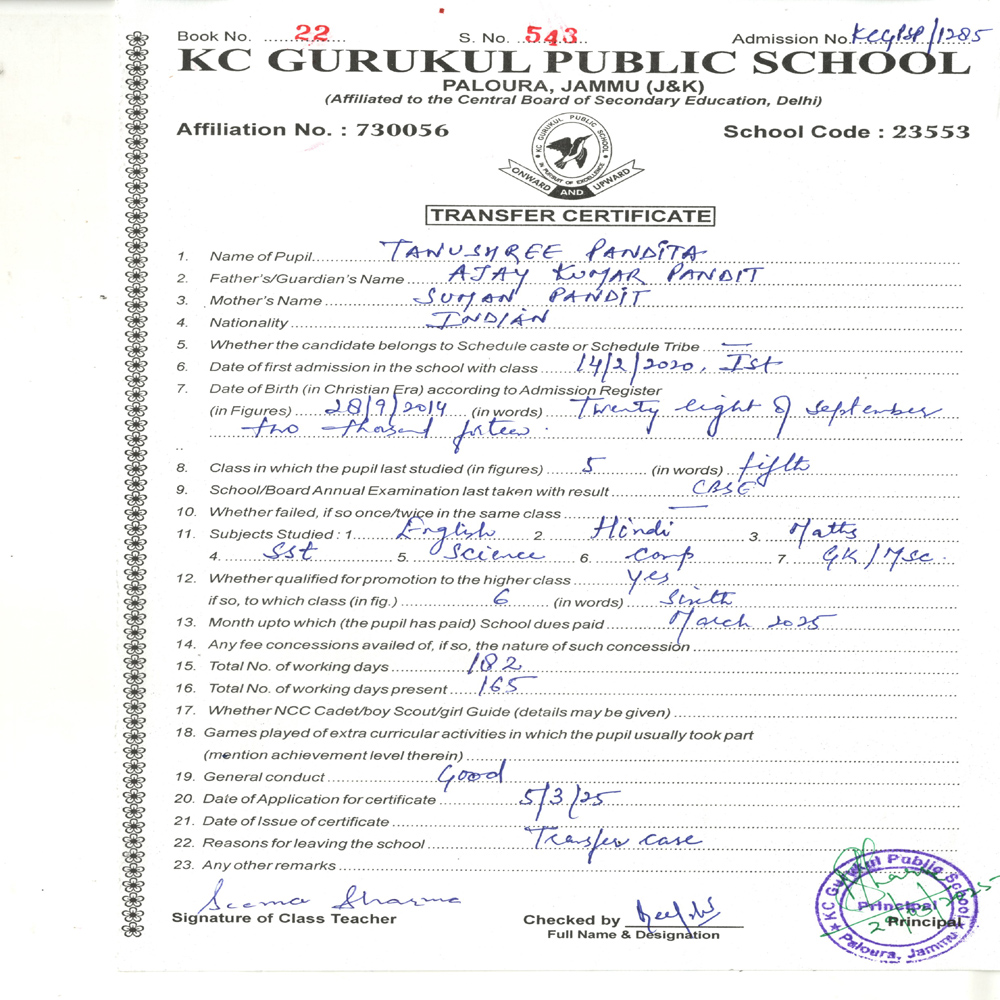 Book No. 22 S. No. 543 Admission No. KCGPSP/1285
KC GURUKUL PUBLIC SCHOOL
PALOURA, JAMMU (J&K)
(Affiliated to the Central Board of Secondary Education, Delhi)
Affiliation No. : 730056 School Code : 23553
KC GURUKUL PUBLIC SCHOOL
IN PURSUIT OF EXCELLENCE
ONWARD AND UPWARD
TRANSFER CERTIFICATE
1. Name of Pupil TANUSHREE PANDITA
2. Father's/Guardian's Name AJAY KUMAR PANDIT
3. Mother's Name SUMAN PANDIT
4. Nationality INDIAN
5. Whether the candidate belongs to Schedule caste or Schedule Tribe —
6. Date of first admission in the school with class 14/2/2020, Ist
7. Date of Birth (in Christian Era) according to Admission Register
(in Figures) 28/9/2014 (in words) Twenty eight of september
two thousand forteen.
8. Class in which the pupil last studied (in figures) 5 (in words) fifth
9. School/Board Annual Examination last taken with result CBSE
10. Whether failed, if so once/twice in the same class —
11. Subjects Studied : 1. English 2. Hindi 3. Maths
4. SSt 5. Science 6. Comp 7. GK/MSc.
12. Whether qualified for promotion to the higher class yes
if so, to which class (in fig.) 6 (in words) Sixth
13. Month upto which (the pupil has paid) School dues paid March 2025
14. Any fee concessions availed of, if so, the nature of such concession
15. Total No. of working days 182
16. Total No. of working days present 165
17. Whether NCC Cadet/boy Scout/girl Guide (details may be given)
18. Games played of extra curricular activities in which the pupil usually took part
(mention achievement level therein)
19. General conduct Good
20. Date of Application for certificate 5/3/25
21. Date of Issue of certificate
22. Reasons for leaving the school Transfer case
23. Any other remarks
Seema Sharma
Signature of Class Teacher Checked by Principal
Full Name & Designation
KC Gurukul Public School
Principal
Paloura, Jammu